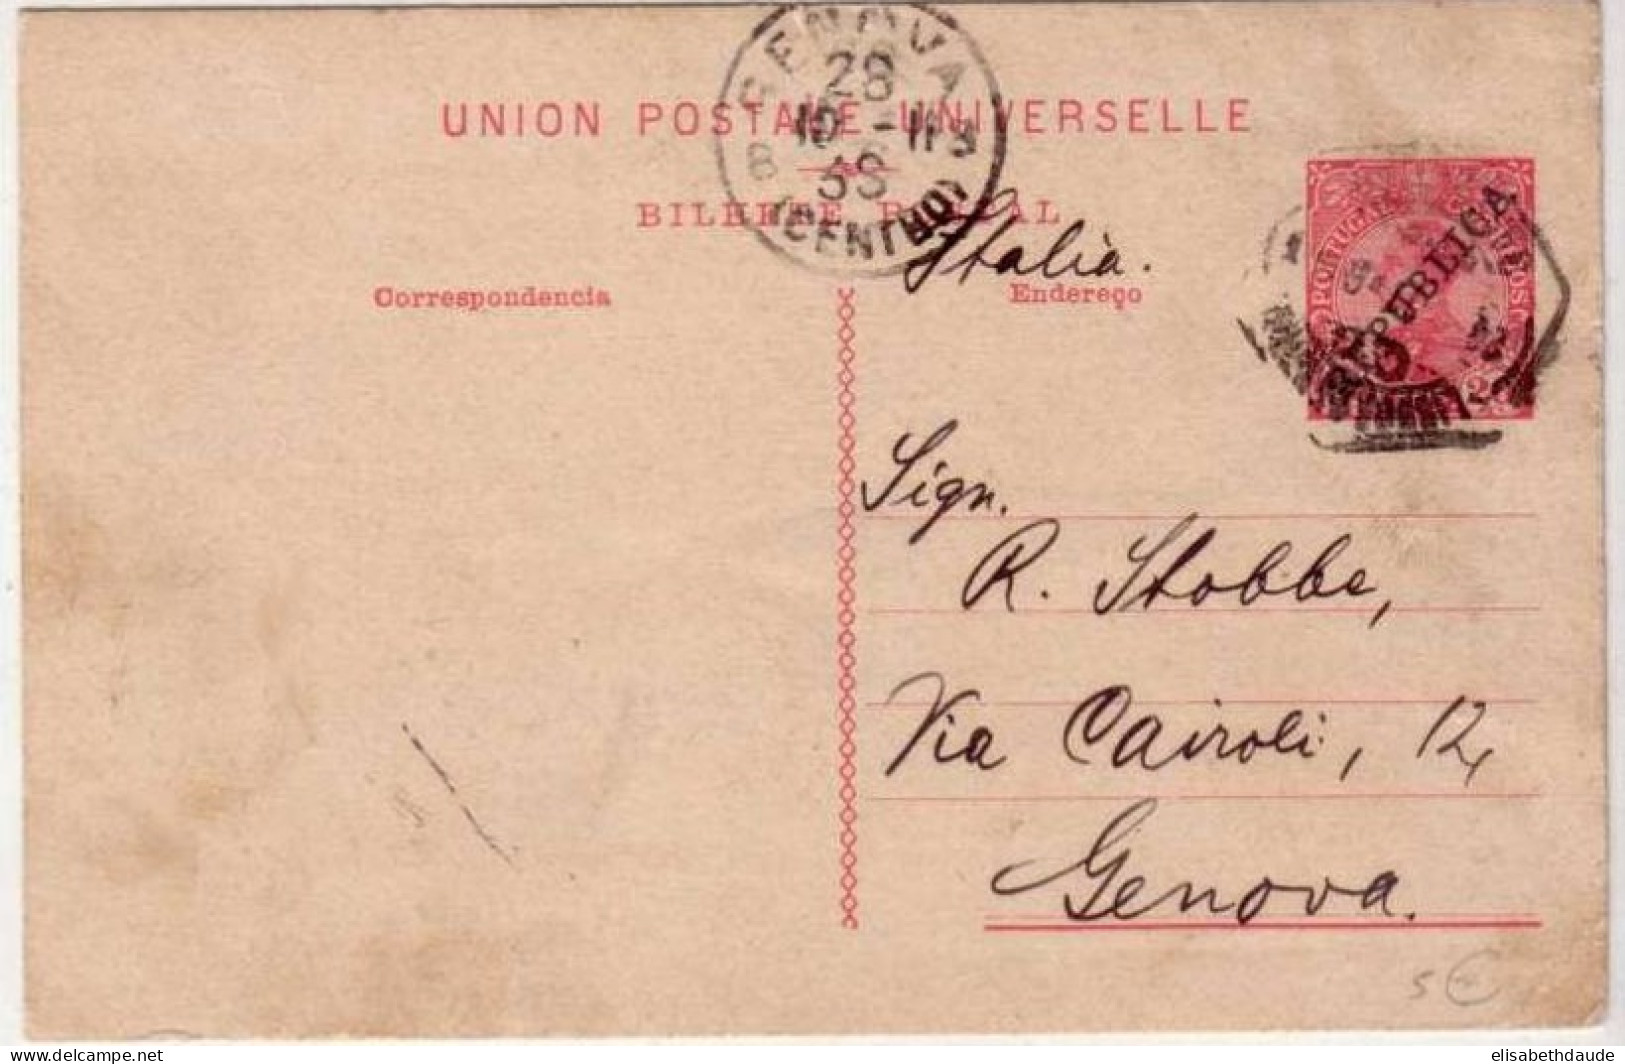 GENOVA
28
10-11 9
3S
8
(CENTRO)
UNION POSTALE UNIVERSELLE
BILHETE POSTAL
Italia.
Correspondencia
Endereço
PORTUGAL
REPUBLICA
25
Sign.
R. Stobbe,
Via Cairoli, 12,
Genova.
5 €
delcampe.net
elisabethdaude